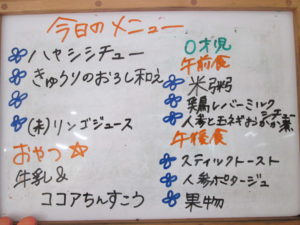 今日のメニュー
ハヤシシチュー
きゅうりのおろし和え
(未)リンゴジュース
おやつ☆
牛乳&
ココアちんすこう
0才児
午前食
米粥
鶏レバーミルク
シチュー
人参と玉ネギおかか煮
午後食
スティックトースト
人参ポタージュ
果物